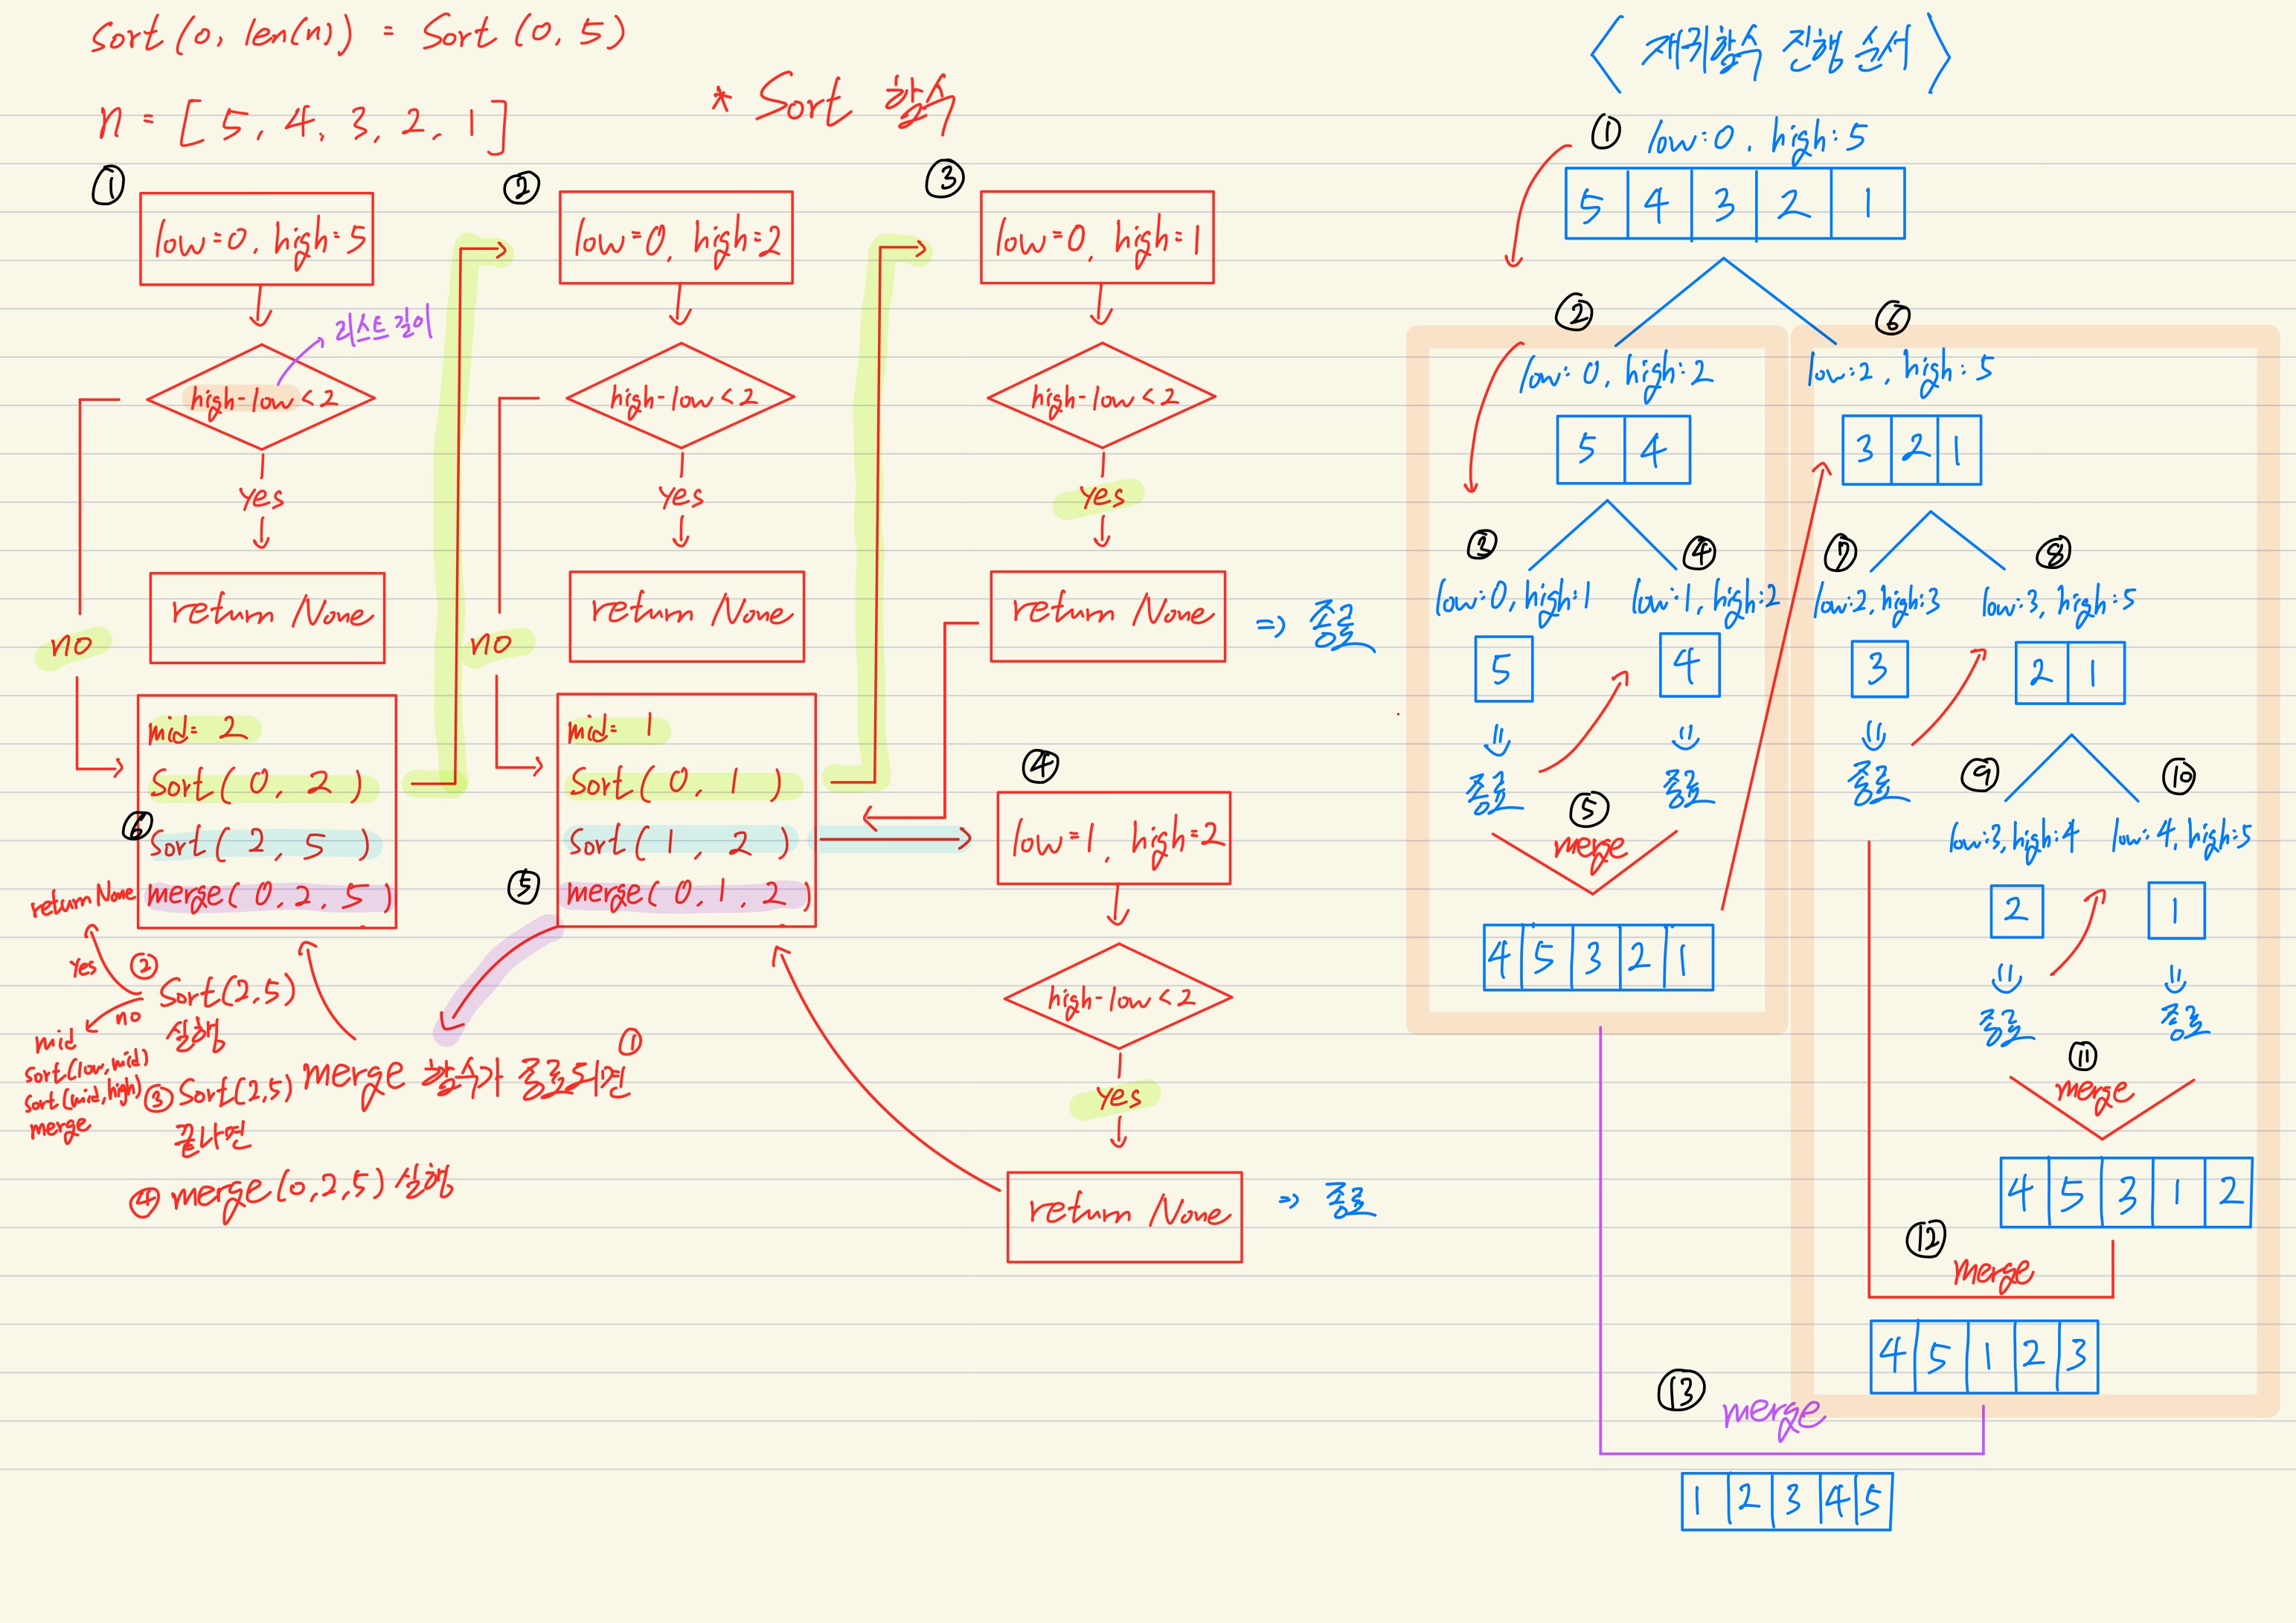 Sort (0, len(n)) = Sort (0, 5)
n = [ 5, 4, 3, 2, 1 ]
* Sort 함수
①
low=0, high=5
리스트 길이
high-low < 2
yes
return None
no
mid= 2
Sort( 0, 2 )
⑥
Sort( 2, 5 )
merge( 0, 2, 5 )
②
low=0, high=2
high-low < 2
yes
return None
no
mid= 1
Sort( 0, 1 )
Sort( 1, 2 )
⑤
merge( 0, 1, 2 )
③
low=0, high=1
high-low < 2
yes
return None
=> 종료
④
low=1, high=2
high-low < 2
yes
return None
=> 종료
① merge 함수가 종료되면
② Sort(2,5)
실행
yes
return None
no
mid
Sort(low,mid)
Sort(mid,high)
merge
③ Sort(2,5)
끝나면
④ merge(0,2,5) 실행
< 재귀함수 진행 순서 >
① low:0, high:5
5 4 3 2 1
②
low:0, high:2
5 4
③
low:0, high:1
5
종료
④
low:1, high:2
4
종료
⑤
merge
4 5 3 2 1
⑥
low:2, high:5
3 2 1
⑦
low:2, high:3
3
종료
⑧
low:3, high:5
2 1
⑨
low:3, high:4
2
종료
⑩
low:4, high:5
1
종료
⑪
merge
4 5 3 1 2
⑫
merge
4 5 1 2 3
⑬
merge
1 2 3 4 5